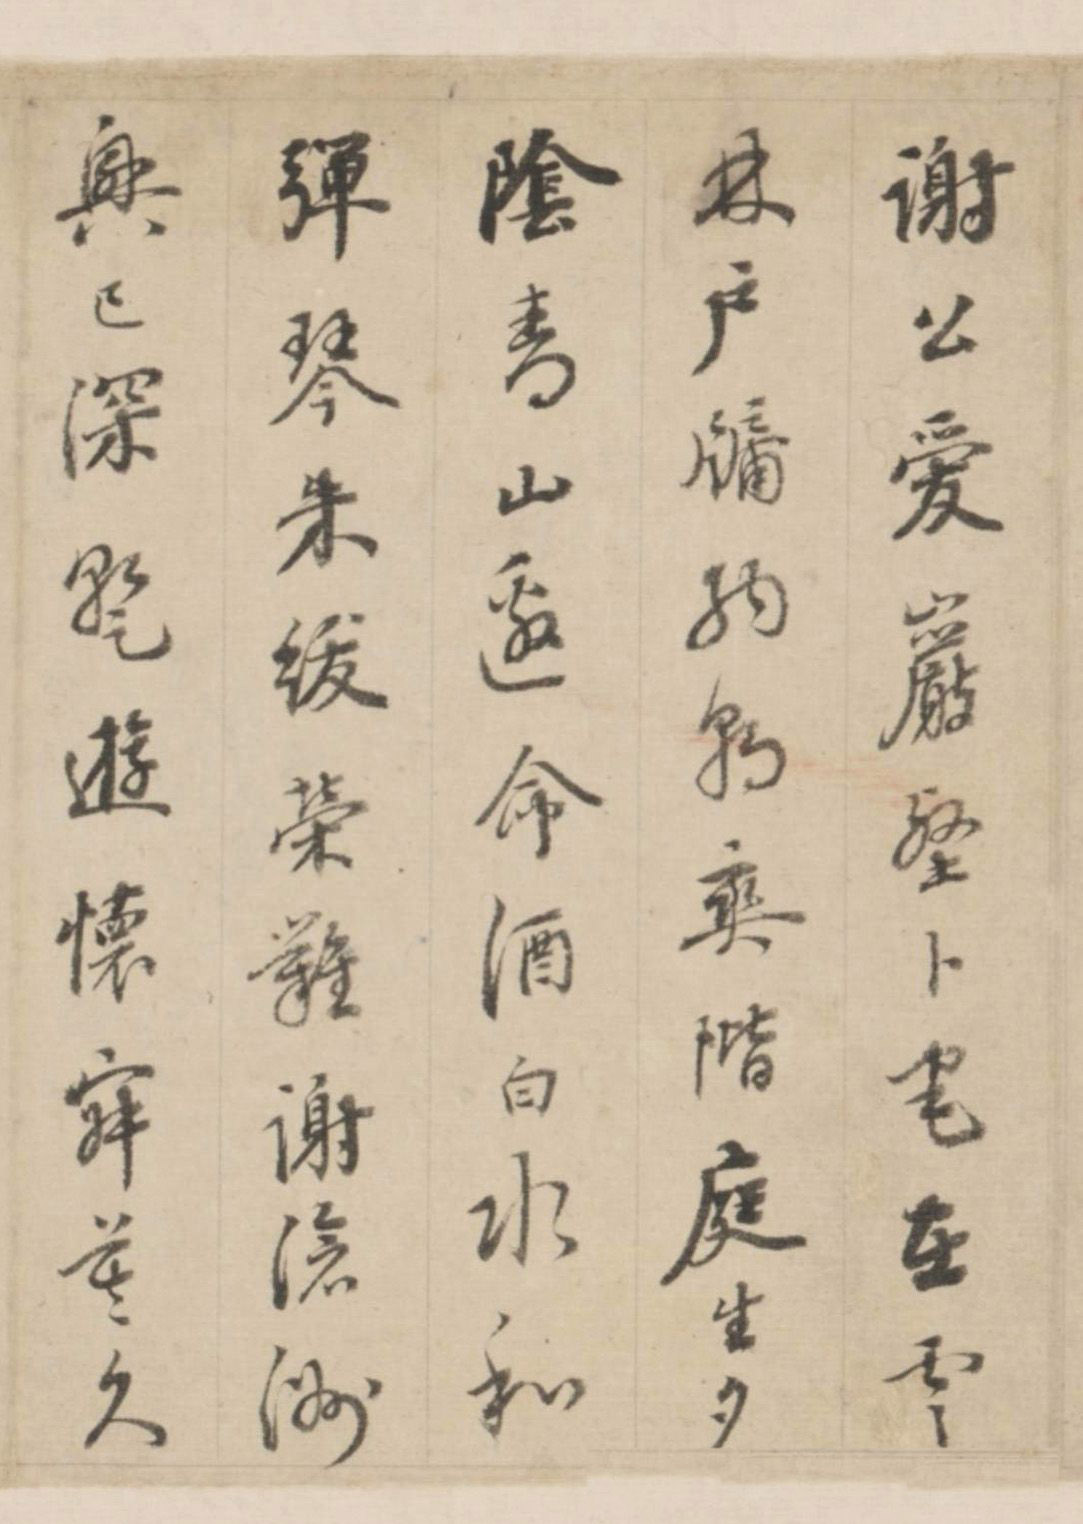 謝公愛巖壑卜宅在雲
林戶牖納朝爽階庭生夕
陰青山邀命酒白水和
彈琴朱紱榮難謝滄洲
興已深蹔遊懷莫久